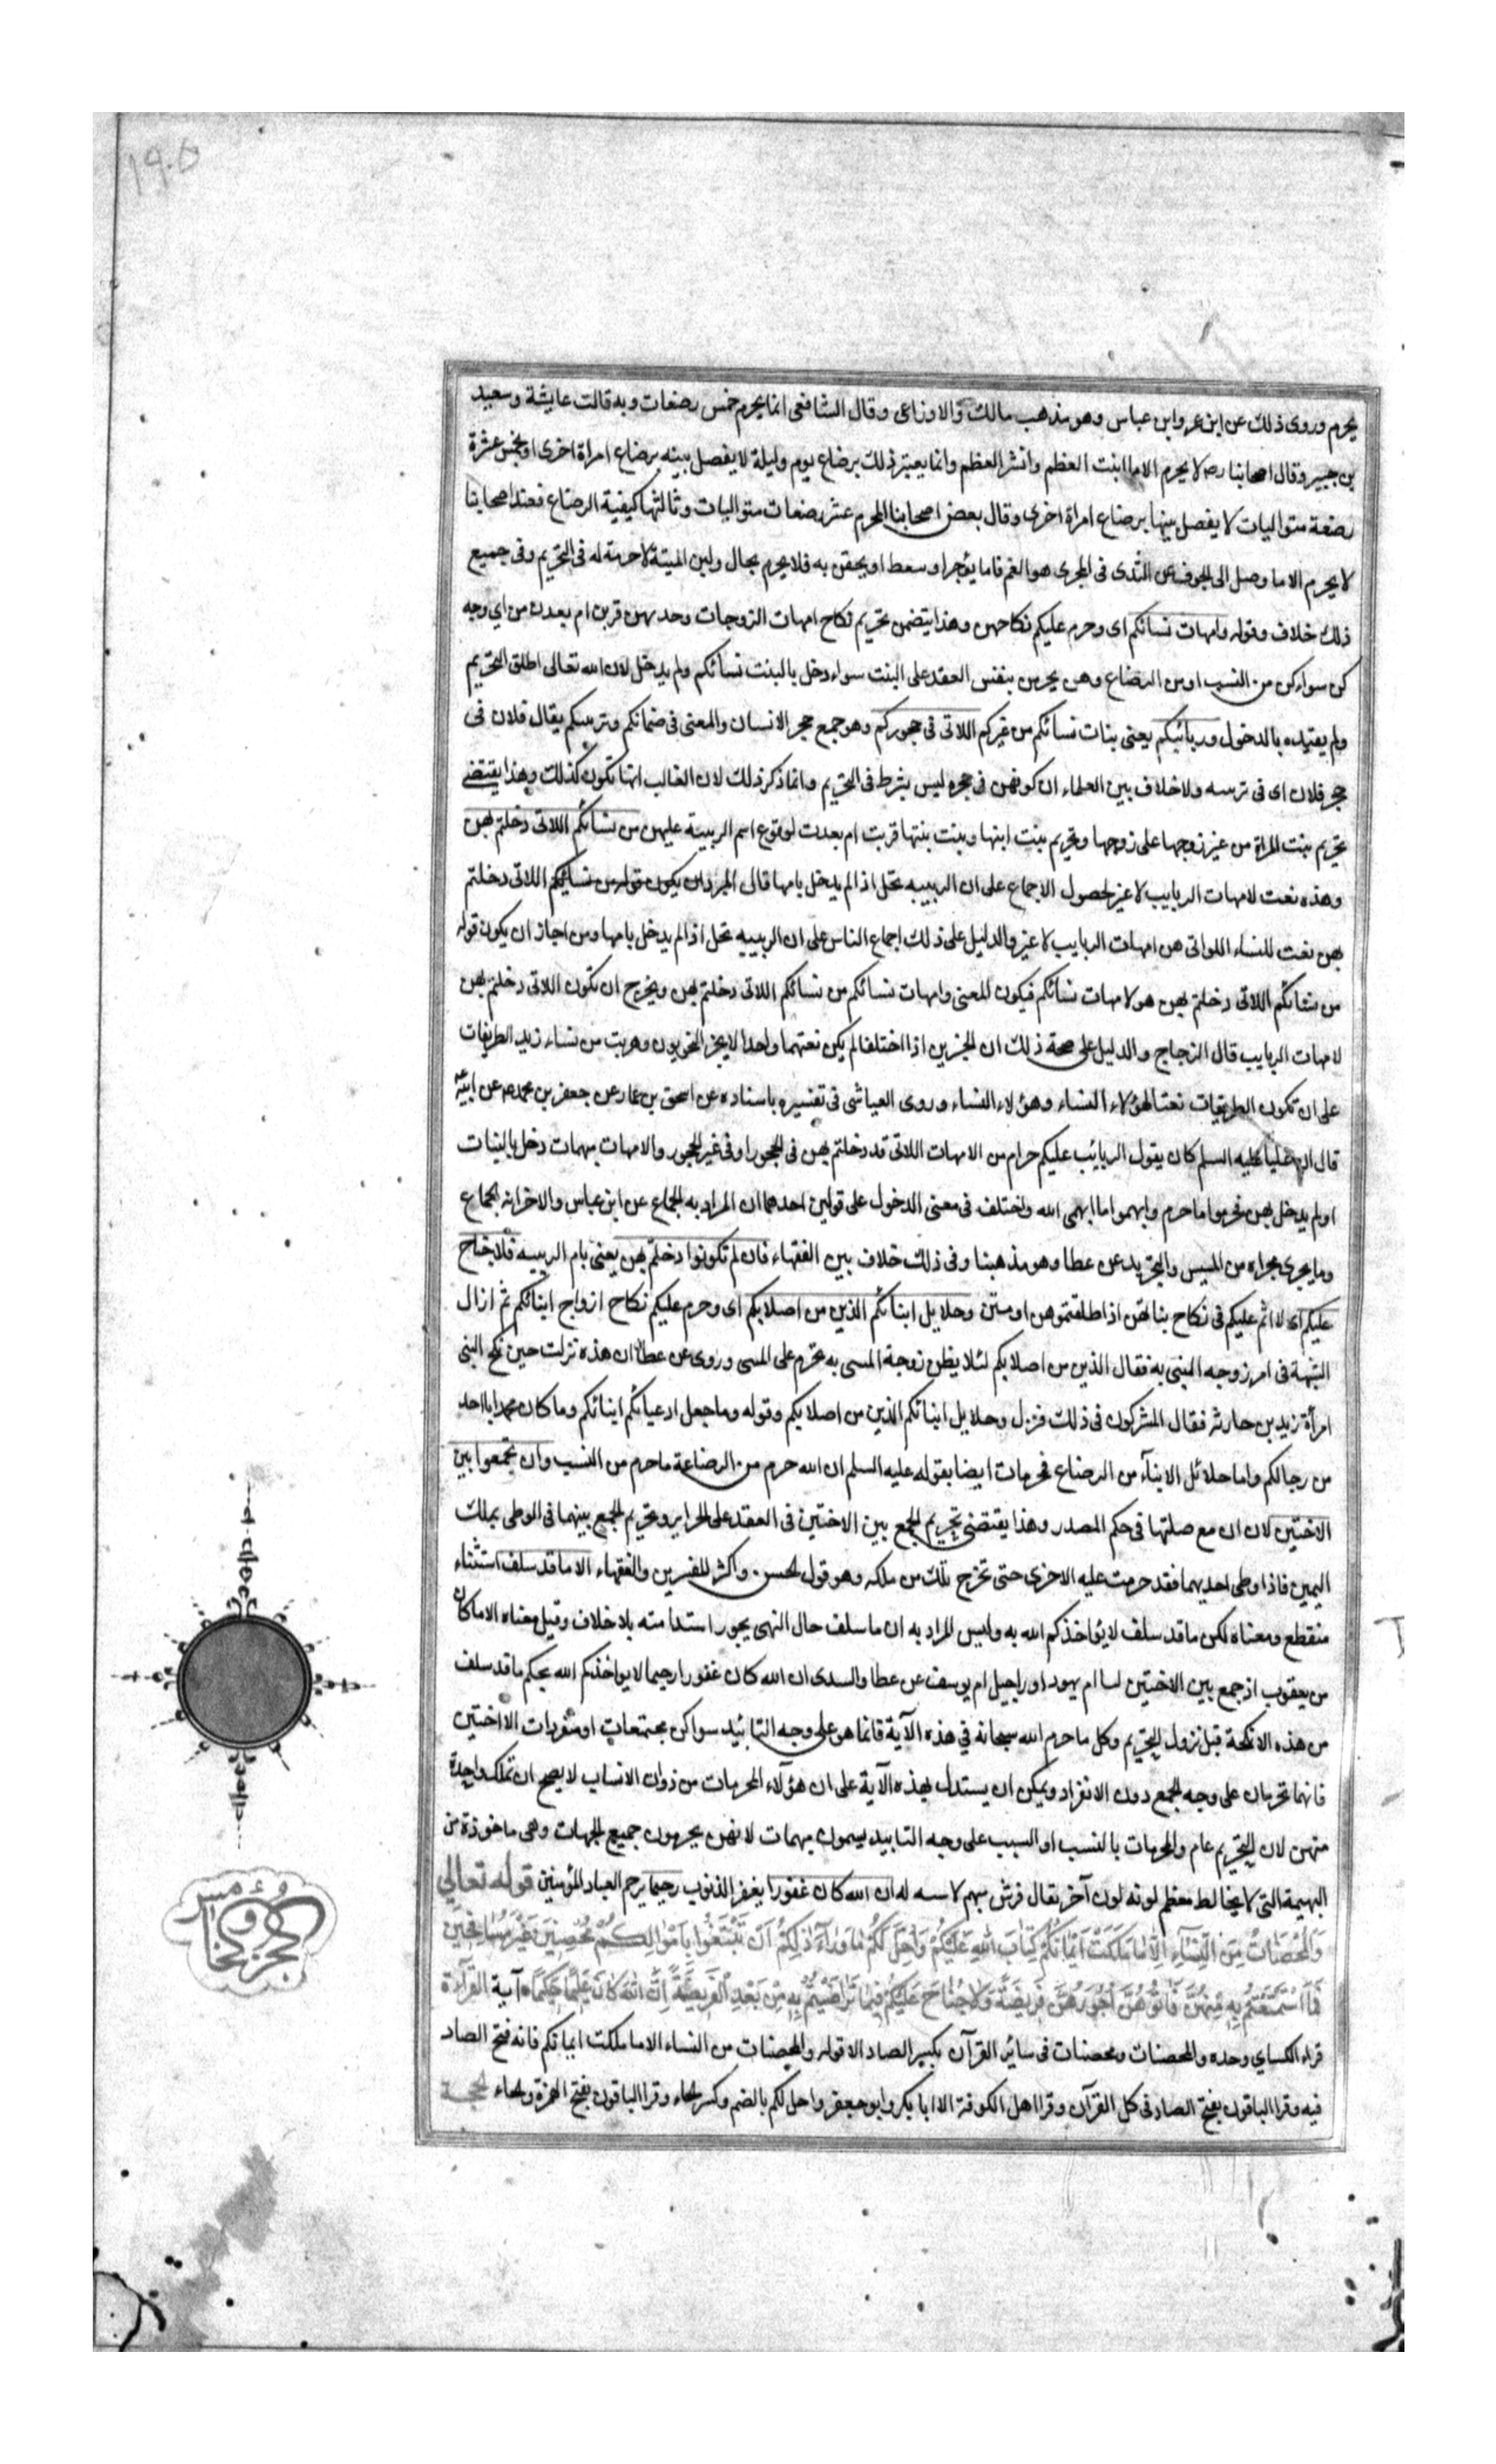 ١٩٠٥
يحرم وروى ذلك عن ابن عمر وابن عباس وهو مذهب مالك والاوزاعى وقال الشافعى انما يحرم خمس رضعات وبه قالت عايشة وسعيد
بن جبير وقال اصحابنا ره لا يحرم الا ما انبت العظم وانشر العظم وانما يعتبر ذلك برضاع يوم وليلة لا يفصل بينه برضاع امراة اخرى او بخمس عشرة
رضعة متواليات لا يفصل بينها برضاع امراة اخرى وقال بعض اصحابنا المحرم عشر رضعات متواليات وثالثها كيفية الرضاع فعند اصحابنا
لا يحرم الا ما وصل الى الجوف من الثدى فى المجرى هو الفم فاما يؤجر او سعط او يحقن به فلا يحرم بحال ولبن الميتة لا حرمة له فى التحريم وفى جميع
ذلك خلاف وقوله وامهات نسائكم اى وحرم عليكم نكاحهن وهذا يتضمن تحريم نكاح امهات الزوجات وحدتهن قربن ام بعدن من اي وجه
كن سواء كن من النسب او من الرضاع وهن يحرمن بنفس العقد على البنت سواء دخل بالبنت نسائكم ولم يدخل لان الله تعالى اطلق التحريم
ولم يقيده بالدخول وربائبكم يعنى بنات نسائكم من غيركم اللاتى فى حجوركم وهو جمع حجر الانسان والمعنى فى ضمانكم وتربيتكم يقال فلان فى
حجر فلان اى فى تربيته ولا خلاف بين العلماء ان كونهن فى حجره ليس بشرط فى التحريم وانما ذكر ذلك لان الغالب انها تكون كذلك وهذا يقتضى
تحريم بنت المراة من غير زوجها على زوجها وتحريم بنت ابنها وبنت بنتها قربت ام بعدت لوقوع اسم الربيبة عليهن من نسائكم اللاتى دخلتم بهن
وهذه نعت لامهات الربايب لا غير لحصول الاجماع على ان الربيبه تحل اذا لم يدخل بامها قال المبرد ان يكون قوله من نسائكم اللاتى دخلتم
بهن نعت للنساء اللواتى هن امهات الربايب لا غير والدليل على ذلك اجماع الناس على ان الربيبه تحل اذا لم يدخل بامها ومن اجاز ان يكون قوله
من نسائكم اللاتى دخلتم بهن هو لامهات نسائكم فيكون المعنى وامهات نسائكم من نسائكم اللاتى دخلتم بهن ويخرج ان تكون اللاتى دخلتم بهن
لامهات الربايب قال الزجاج والدليل على صحة ذلك ان الخبرين اذا اختلفا لم يكن نعتهما واحدا لا يجيز النحويون وهربت من نساء زيد الظريفات
على ان تكون الظريفات نعتا لهؤلاء النساء وهؤلاء النساء وروى العياشى فى تفسيره باسناده عن اسحق بن عمار عن جعفر بن محمد عن ابيه
قال ان عليا عليه السلم كان يقول الربائب عليكم حرام من الامهات اللاتى قد دخلتم بهن فى الحجور او فى غير الحجور والامهات مبهمات دخل بالبنات
او لم يدخل بهن فحرموا ما حرم وابهموا ما ابهم الله واختلف فى معنى الدخول على قولين احدهما ان المراد به الجماع عن ابن عباس والاخر انه الجماع
وما يجرى مجراه من المسيس والتجريد عن عطا وهو مذهبنا وفى ذلك خلاف بين الفقهاء فان لم تكونوا دخلتم بهن يعنى بام الربيبه فلا جناح
عليكم اى لا اثم عليكم فى نكاح بناتهن اذا طلقتموهن او متن وحلايل ابنائكم الذين من اصلابكم اى وحرم عليكم نكاح ازواج ابنائكم ثم ازال
الشبهة فى امر زوجه المتبنى به فقال الذين من اصلابكم لئلا يظن زوجة المتبنى به تحرم على المتبنى وروى عن عطا ان هذه نزلت حين نكح النبى
امرأة زيد بن حارثه فقال المشركون فى ذلك فنزل وحلايل ابنائكم الذين من اصلابكم وقوله وما جعل ادعيائكم ابنائكم وما كان محمد ابا احد
من رجالكم واما حلائل الابنآء من الرضاع فحرمات ايضا بقوله عليه السلم ان الله حرم من الرضاعة ما حرم من النسب وان تجمعوا بين
الاختين لان ان مع صلتها فى حكم المصدر وهذا يقتضى تحريم الجمع بين الاختين فى العقد على الحراير وتحريم الجمع بينهما فى الوطى بملك
اليمين فاذا وطى احديهما فقد حرمت عليه الاخرى حتى تخرج تلك من ملكه وهو قول الحسن واكثر المفسرين والفقهاء الا ما قد سلف استثناء
منقطع ومعناه لكن ما قد سلف لا يؤاخذكم الله به وليس المراد به ان ما سلف حال النهى يجوز استدامته بلا خلاف وقيل معناه الا ما كان
من يعقوب اذ جمع بين الاختين ليا ام يهودا وراحيل ام يوسف عن عطا والسدى ان الله كان غفورا رحيما لا يواخذكم الله بحكم ما قد سلف
من هذه الانكحة قبل نزول التحريم وكل ما حرم الله سبحانه في هذه الآية فانما هو على وجه التابيد سوا كن مجتمعات او منفردات الا الاختين
فانهما تحرمان على وجه الجمع دون الانفراد ويمكن ان يستدل بهذه الآية على ان هؤلآء المحرمات من ذوات الانساب لا يصح ان تملك واحدة
منهن لان التحريم عام والمحرمات بالنسب او السبب على وجه التابيد يسمون مبهمات لانهن يحرمون جميع الجهات وهى ماخوذة من
البهيمة التى لا يخالط معظم لونه لون آخر يقال فرس بهيم لا شيه له ان الله كان غفورا يغفر الذنوب رحيما يرحم العباد المؤمنين قوله تعالى
وَالْمُحْصَنَاتُ مِنَ النِّسَآءِ اِلَّا مَا مَلَكَتْ اَيْمَانُكُمْ كِتَابَ اللهِ عَلَيْكُمْ وَاُحِلَّ لَكُمْ مَا وَرَآءَ ذٰلِكُمْ اَنْ تَبْتَغُوا بِاَمْوَالِكُمْ مُحْصِنِينَ غَيْرَ مُسَافِحِينَ
فَمَا اسْتَمْتَعْتُمْ بِهِ مِنْهُنَّ فَاٰتُوهُنَّ اُجُورَهُنَّ فَرِيضَةً وَلَا جُنَاحَ عَلَيْكُمْ فِيمَا تَرَاضَيْتُمْ بِهِ مِنْ بَعْدِ الْفَرِيضَةِ اِنَّ اللهَ كَانَ عَلِيمًا حَكِيمًا آية القرآءة
قراء الكسايي وحده والمحصنات ومحصنات فى سائر القرآن بكسر الصاد الا قوله والمحصنات من النساء الا ما ملكت ايمانكم فانه فتح الصاد
فيه وقرا الباقون بفتح الصاد فى كل القرآن وقرا اهل الكوفة الا ابا بكر وابو جعفر واحل لكم بالضم وكسر الحاء وقرا الباقون بفتح الهمزة والحاء الحجة
الجزء الخامس